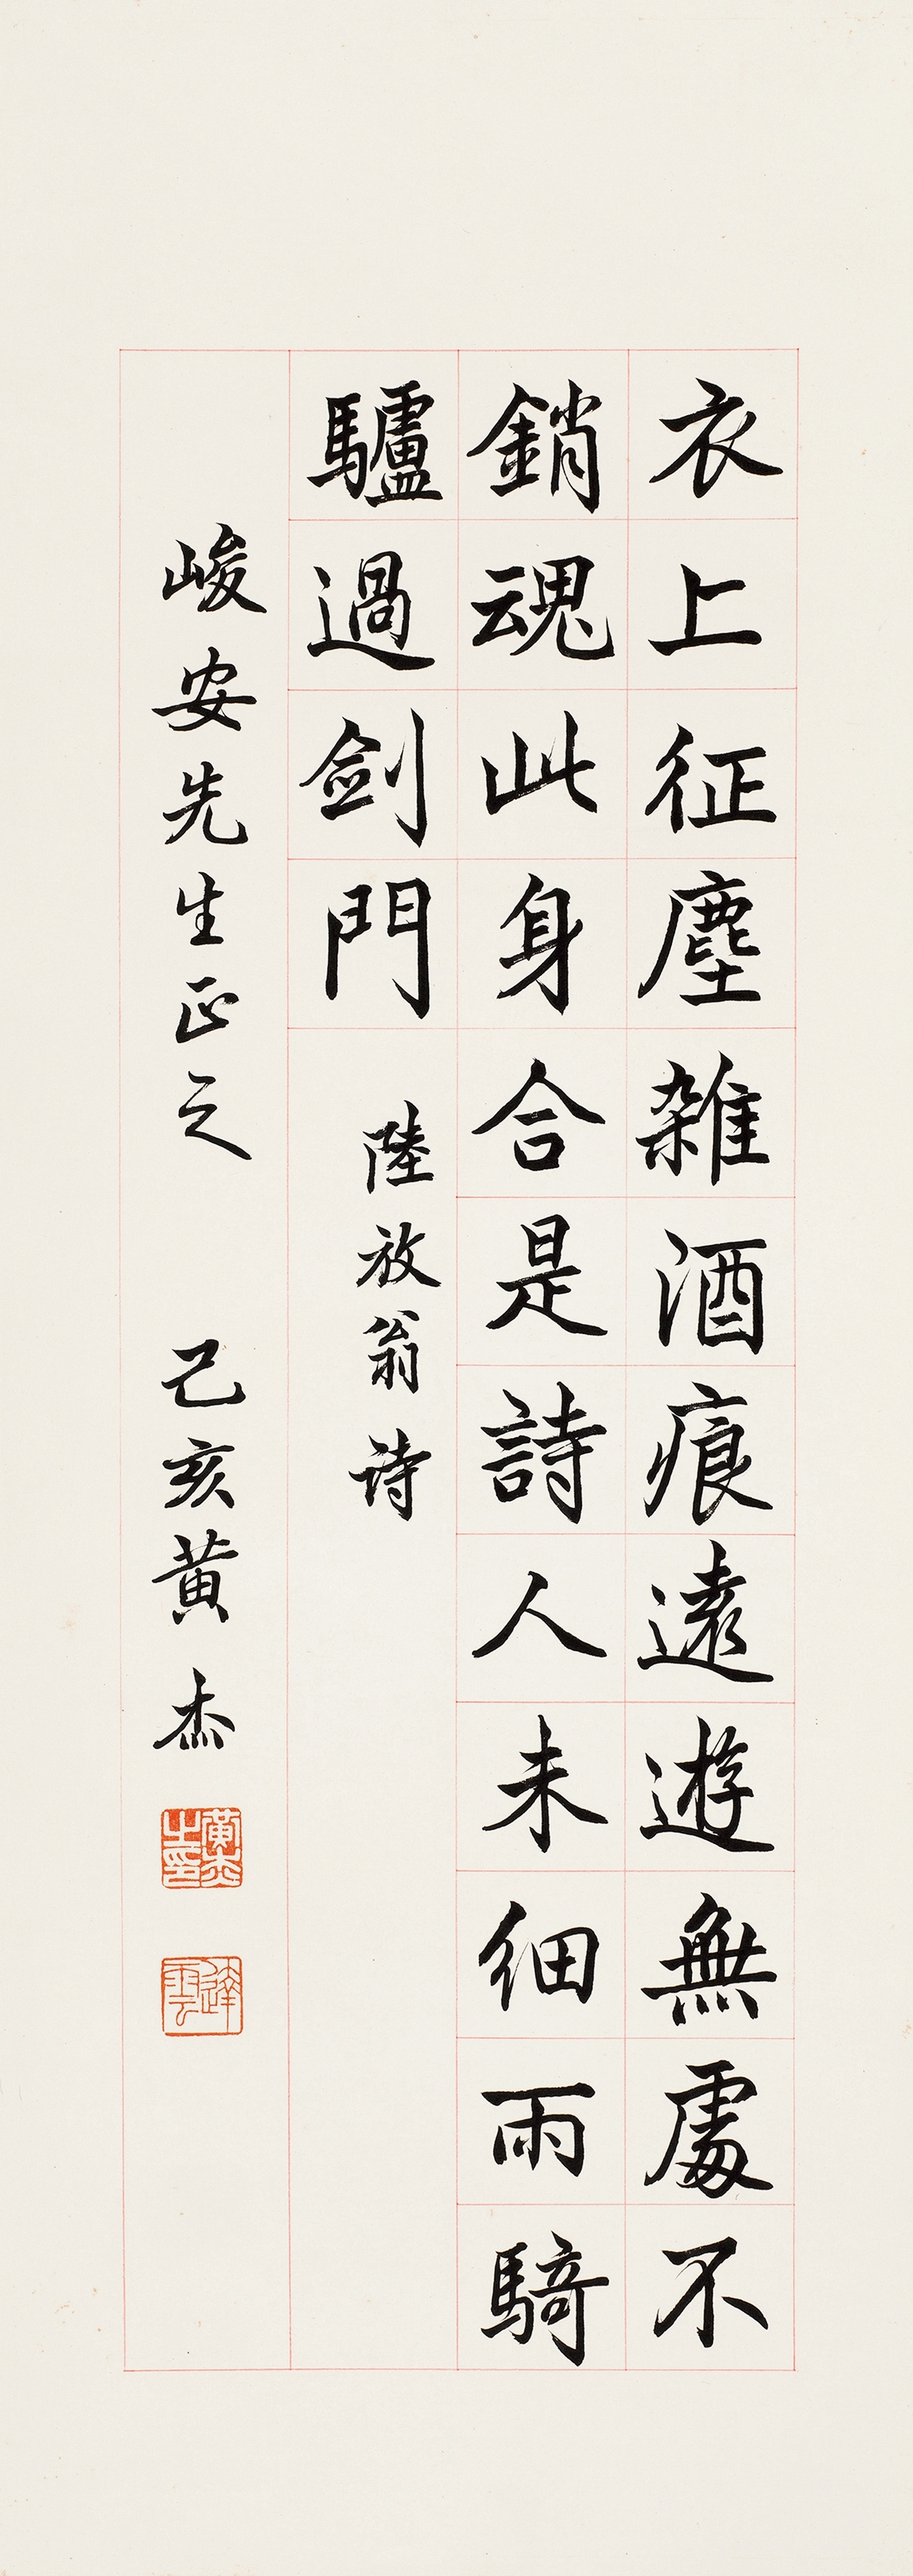 衣上征塵雜酒痕遠遊無處不
銷魂此身合是詩人未細雨騎
驢過剑門
陸放翁诗
峻安先生正之
己亥黄杰
黃杰之印
達雲